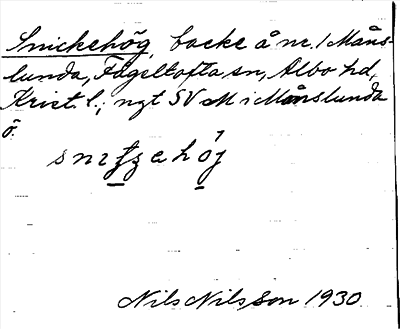 Snickehög, backe å nr. 1 Måns-
lunda, Fågeltofta sn, Albo hd,
Krist. l.; ngt SV M i Månslunda
ö.
Nils Nilsson 1930